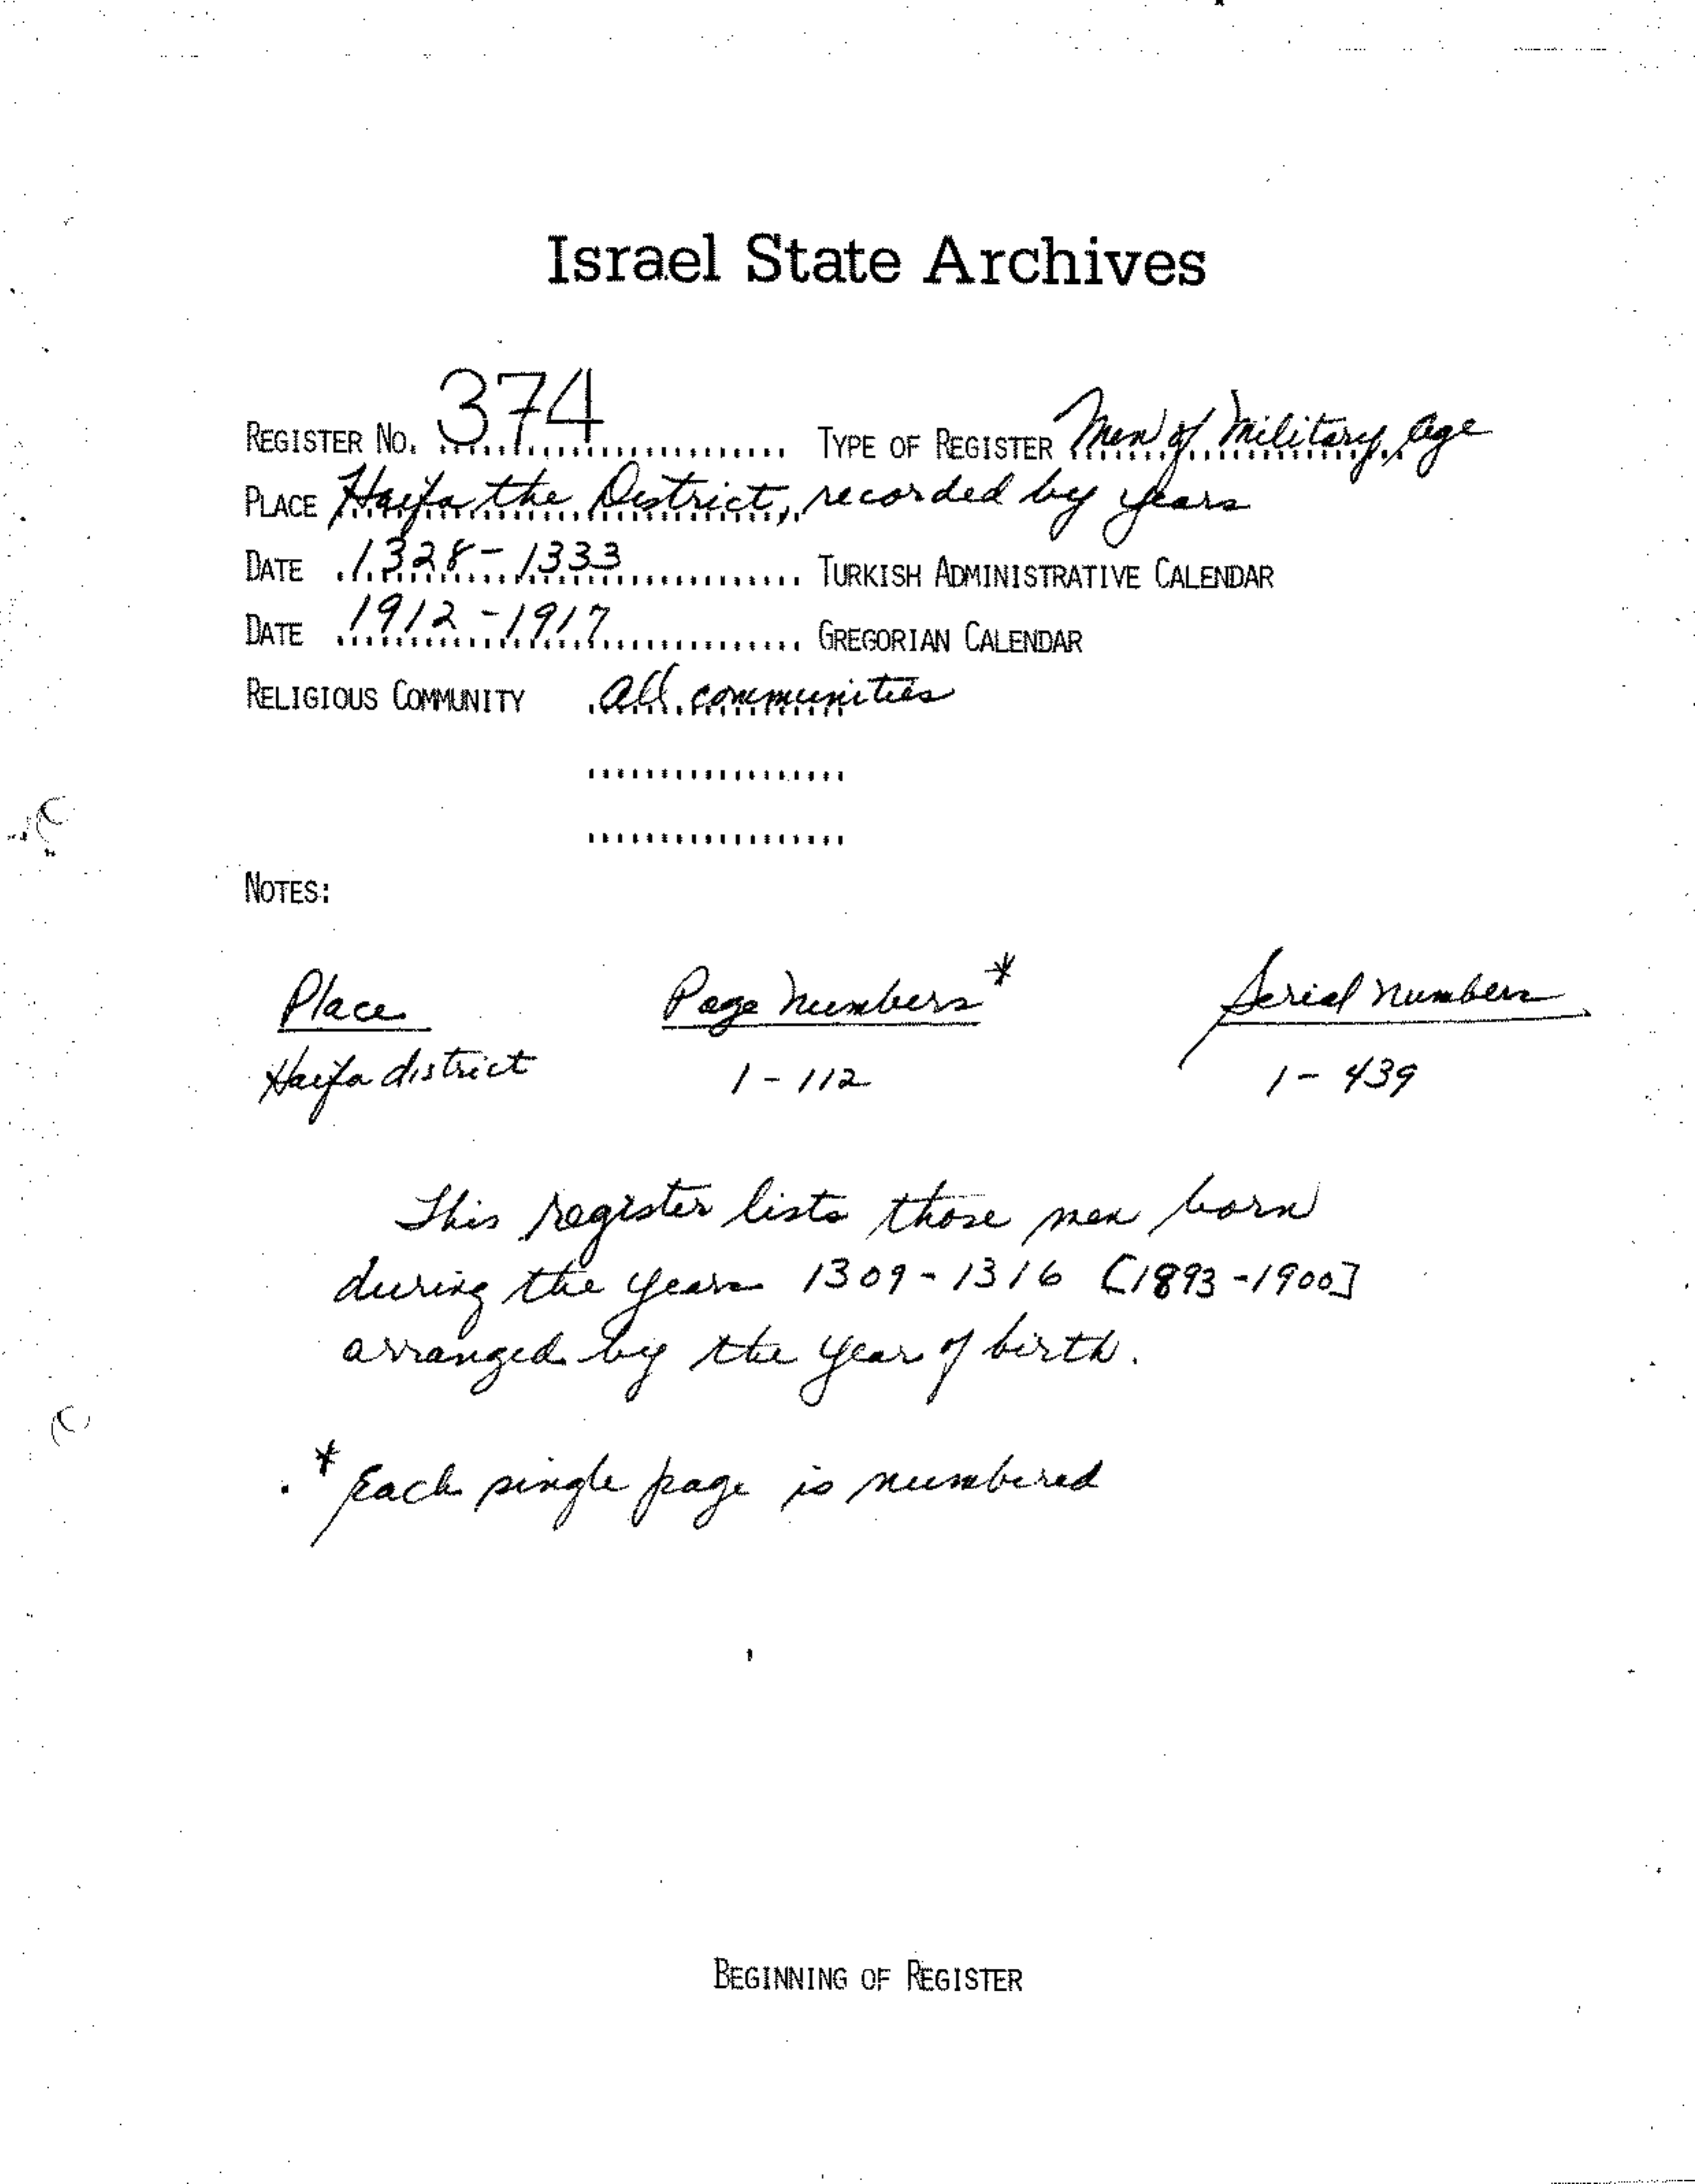 Israel State Archives
REGISTER NO. 374 TYPE OF REGISTER Men of Military age
PLACE Haifa the District, recorded by years
DATE 1328-1333 TURKISH ADMINISTRATIVE CALENDAR
DATE 1912-1917 GREGORIAN CALENDAR
RELIGIOUS COMMUNITY all communities
NOTES:
Place Page Numbers* Serial Numbers
Haifa district 1-112 1-439
This register lists those men born
during the years 1309-1316 [1893-1900]
arranged by the year of birth.
* Each single page is numbered
BEGINNING OF REGISTER